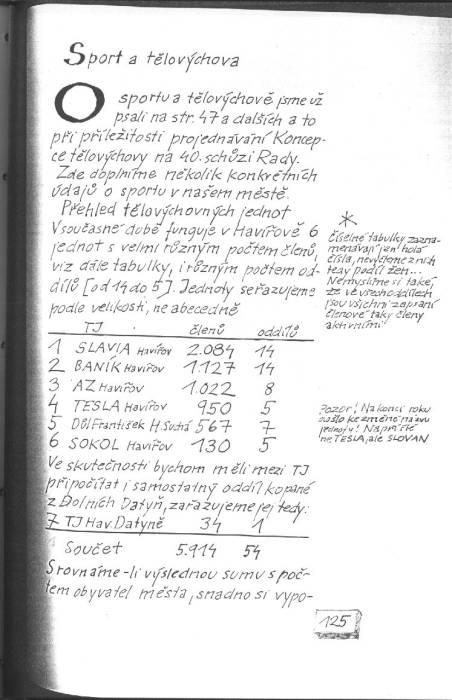 Sport a tělovýchova
O sportu a tělovýchově jsme už
psali na str. 47 a dalších a to
při příležitosti projednávání Koncep-
ce tělovýchovy na 40. schůzi Rady.
Zde doplníme několik v konkrétních
údajů o sportu v našem městě.
Přehled tělovýchovných jednot
V současné době funguje v Havířově 6
jednot s velmi různým počtem členů,
viz dále tabulky, i různým počtem od-
dílů [od 14 do 5]. Jednoty seřazujeme
podle velikosti, ne abecedně
TJ členů oddílů
1 SLAVIA Havířov 2.084 14
2 BANÍK Havířov 1.127 14
3 AZ Havířov 1.022 8
4 TESLA Havířov 950 5
5 Důl František H. Suchá 567 7
6 SOKOL Havířov 130 5
Ve skutečnosti bychom měli mezi TJ
připočítat i samostatný oddíl kopané
z Dolních Datyň, zařazujeme jej tedy:
7 TJ Hav. Datyně 34 1
Součet 5.914 54
Srovnáme-li výslednou sumu s poč-
tem obyvatel města, snadno si vypo-
*
Číselné tabulky zazna-
menávají jen holá
čísla, nevyčteme z nich
tedy podíl žen...
Nemyslíme si také,
že ve všech oddílech
jsou všichni zapsaní
členové taky členy
aktivními
Pozor! Na konci roku
došlo ke změně názvu
jednoty! Napříště
ne TESLA, ale SLOVAN
125